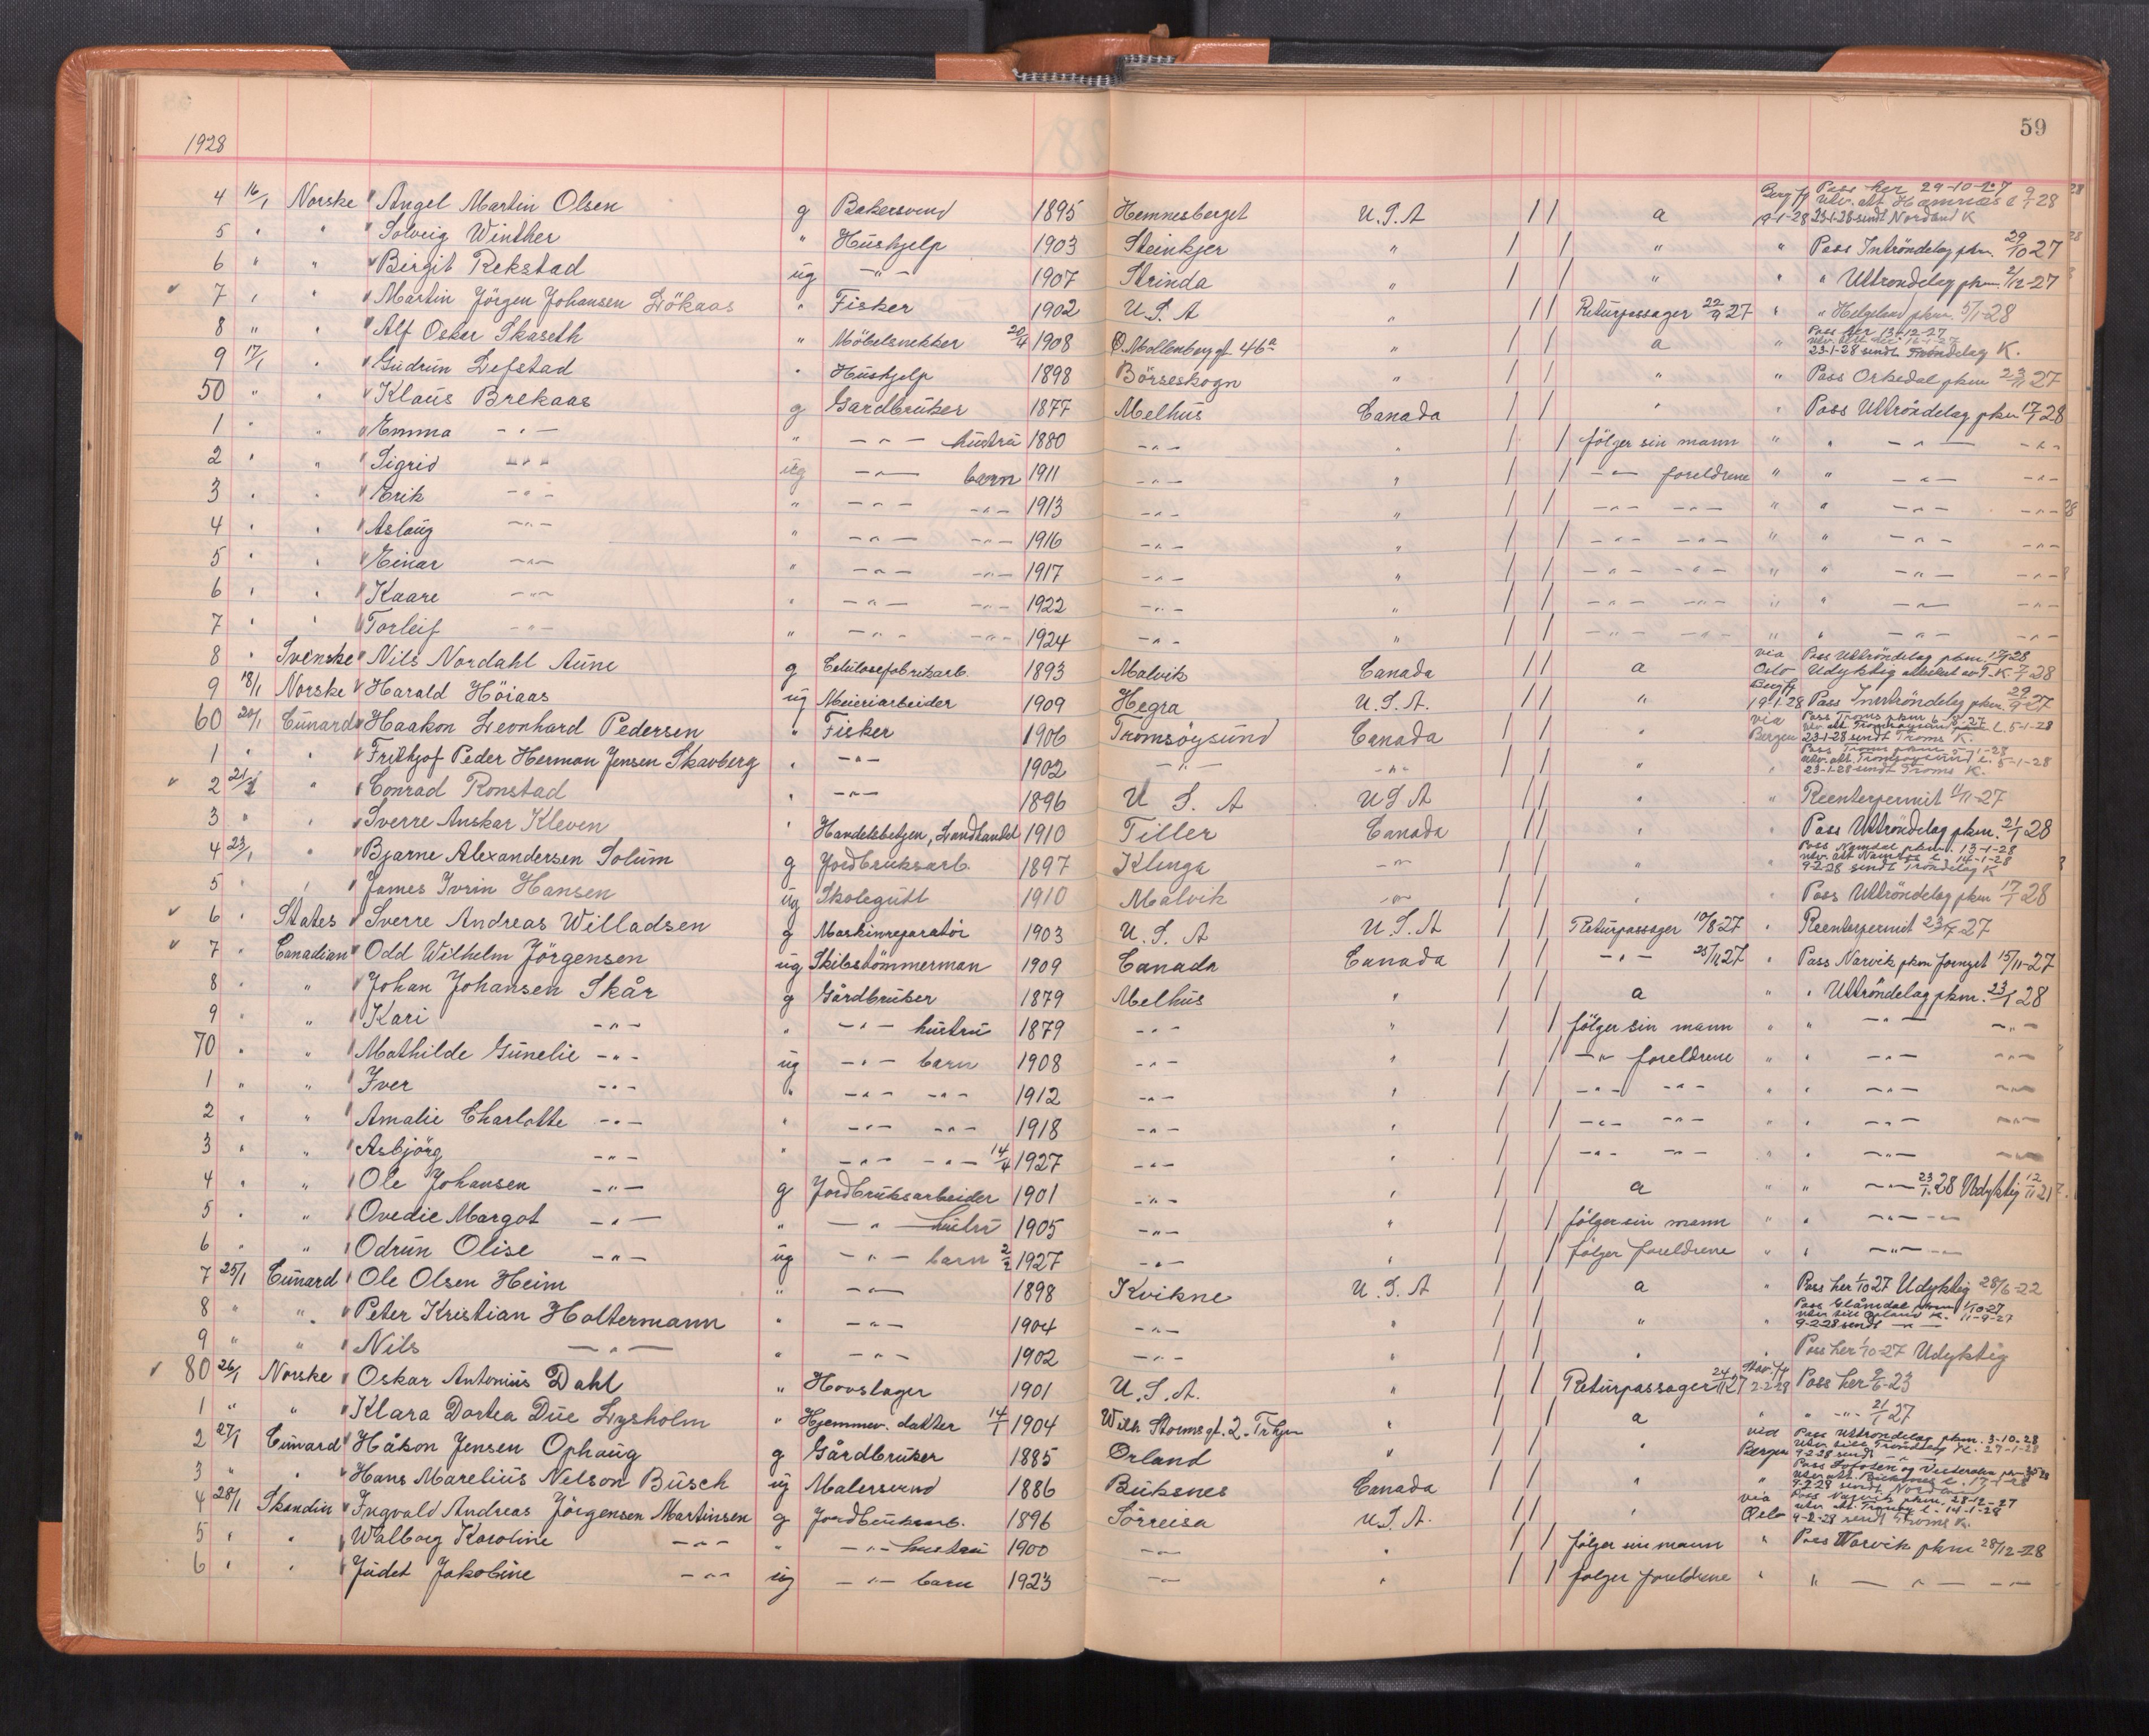 1928
59
4 16/1 Norske Angel Martin Olsen g Bakersvend 1895 Hemnesberget U.S.A / / a Berg ff 19-1-28 Pass her 29-10-27 utv. att Hamnæs 23-1-28 sendt Nordland K
5 " " Solveig Winther " Hushjelp 1903 Steinkjer " / / " " Pass Intröndelag pkm. 29/10 27
6 " " Birgit Rekstad ug -"- 1907 Strinda " / / " " " Uttröndelag pkm. 2/12-27
7 " " Martin Jörgen Johansen Lökaas " Fisker 1902 U.S.A " / / Returpassager 22/9 27 " " Helgeland pkm. 5/1-28
8 " " Alf Oskar Skaseth " Möbelsnekker 20/4 1908 Ö. Mollenberg gt. 46a " / / a " Pass her 13-12-27 23-1-28 sendt Tröndelag K.
9 17/1 " Gudrun Lefstad " Hushjelp 1898 Börseskogn " / / " " Pass Orkedal pkm 23/11 27
50 " " Klaus Brekaas g Gardbruker 1877 Melhus Canada / / " " Pass Uttröndelag pkm 17/1 28
1 " " Emma -"- " -"- hustru 1880 -"- " / / fölger sin mann " " -"- -"-
2 " " Sigrid -"- ug -"- barn 1911 -"- " / / -"- foreldrene " " -"- -"-
3 " " Erik -"- " -"- -"- 1913 -"- " / / -"- -"- " " -"- -"-
4 " " Aslaug -"- " -"- -"- 1916 -"- " / / -"- -"- " " -"- -"-
5 " " Einar -"- " -"- -"- 1917 -"- " / / -"- -"- " " -"- -"-
6 " " Kaare -"- " -"- -"- 1922 -"- " / / -"- -"- " " -"- -"-
7 " " Torleif -"- " -"- -"- 1924 -"- " / / -"- -"- " " -"- -"-
8 " Svenske Nils Nordahl Aune g Celulosefabrikarb. 1893 Malvik Canada / / a via Oslo Pass Uttröndelag pkm. 17/1 28 Udyktig
9 18/1 Norske Harald Höiaas ug Meieriarbeider 1909 Hegra U.S.A. / / " Berg ff 19-1-28 Pass Inntröndelag pkm. 29/9-27
60 20/1 Cunard Haakon Leonhard Pedersen " Fisker 1906 Tromsöysund Canada / / " via Bergen Pass Troms pkm utv. att Tromsöysund l. 5-1-28 23-1-28 sendt Troms K.
1 " " Frithjof Peder Herman Jensen Skavberg " -"- 1902 -"- -"- / / " " Pass Troms pkm 5-1-28 utv. att. Tromsöysund l. 5-1-28 23-1-28 sendt Troms K.
2 21/1 " Conrad Ronstad " -"- 1896 U S. A U S A / / " " Reenterpermit 1/11-27
3 " " Sverre Anskar Kleven " Handelsbetjen, Landhandel 1910 Tiller Canada / / " " Pass Uttröndelag pkm. 21/1 28
4 23/1 " Bjarne Alexandersen Solum g Jordbruksarb. 1897 Klinga -"- / / " " Pass Namdal pkm. 13-1-28 utv. att Namsos l. 14-1-28 9-2-28 sendt Tröndelag K
5 " " James Ivrin Hansen ug Skolegutt 1910 Malvik -"- / / " " Pass Uttröndelag pkm 17/1 28
6 " States Sverre Andreas Willadsen g Maskinreparatör 1903 U.S.A U.S.A / / Returpassager 10/8 27 " Reenterpermit 23/7-27
7 " Canadian Odd Wilhelm Jörgensen ug Skibstömmerman 1909 Canada Canada / / -"- 25/11 27 " Pass Narvik pkm fornyet 15/11-27
8 " " Johan Johansen Skår g Gårdbruker 1879 Melhus " / / a " " Uttröndelag pkm. 23/1 28
9 " " Kari -"- " -"- hustru 1879 -"- " / / fölger sin mann " " -"- -"-
70 " " Mathilde Gunelie -"- ug -"- barn 1908 -"- " / / -"- foreldrene " " -"- -"-
1 " " Iver -"- " -"- -"- 1912 -"- " / / -"- -"- " " -"- -"-
2 " " Amalie Charlotte -"- " -"- -"- 1918 -"- " / / -"- -"- " " -"- -"-
3 " " Asbjörg -"- " -"- -"- 14/4 1927 -"- " / / -"- -"- " " -"- -"-
4 " " Ole Johansen -"- g Jordbruksarbeider 1901 -"- " / / a " " -"- 23/1.28 Udyktig 12/11 21
5 " " Ovedie Margot -"- " -"- hustru 1905 -"- " / / fölger sin mann " " -"- -"-
6 " " Odrun Olise -"- ug -"- barn 2/2 1927 -"- " / / fölger foreldrene " " -"- -"-
7 25/1 Cunard Ole Olsen Heim " -"- 1898 Kvikne U.S.A / / a " Pass her 1/10 27 Udyktig 28/6-22
8 " " Peter Kristian Holtermann " -"- 1904 -"- " / / " " Pass Glåmdal pkm 1/10-27 9-2-28 sendt -"-
9 " " Nils -"- " -"- 1902 -"- " / / " " Pass her 1/10-27 Udyktig
80 26/1 Norske Oskar Antonius Dahl " Hovslager 1901 U.S.A. " / / Returpassager 24/11 27 Stav. ff 2-2-28 Pass her 9/6-23
1 " " Klara Dortea Due Lysholm " Hjemmev. datter 14/1 1904 Wilh. Storms gt. 2. Trhjm " / / a " " -"- 21/1 27
2 27/1 Cunard Håkon Jensen Ophaug g Gårdbruker 1885 Örland " / / " via Bergen Pass Uttröndelag pkm. 3-10-28 utv. till Tröndelag K. 27-1-28 9-2-28 sendt
3 " " Hans Marelius Nelson Busch ug Malersvend 1886 Buksnes Canada / / " " Pass Lofoten og Vesterålen 9-2-28 sendt Nordland
4 28/1 Skandin Ingvald Andreas Jörgensen Martinsen g Jordbruksarb. 1896 Sörreisa U.S.A. / / " via Oslo Pass Narvik pkm. 28-12-27 utv. att. Tranöy l. 14-1-28 9-2-28 sendt Troms K.
5 " " Walborg Karoline -"- " -"- hustru 1900 -"- " / / fölger sin mann " Pass Narvik pkm 28/12-28
6 " " Judet Jakobine -"- ug -"- barn 1923 -"- " / / fölger foreldrene " " -"- -"-